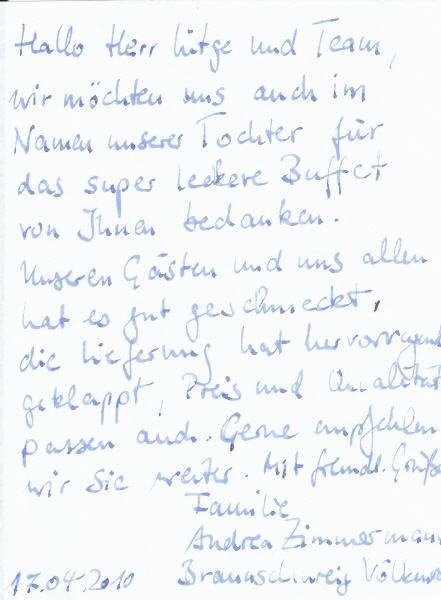 Hallo Herr Lütge und Team,
wir möchten uns auch im
Namen unserer Tochter für
das super leckere Buffet
von Ihnen bedanken.
Unseren Gästen und uns allen
hat es gut geschmeckt,
die Lieferung hat hervorragend
geklappt, Preis und Qualität
passen auch. Gerne empfehlen
wir Sie weiter. Mit freundl. Grüße
Familie
Andrea Zimmermann
17.04.2010 Braunschweig